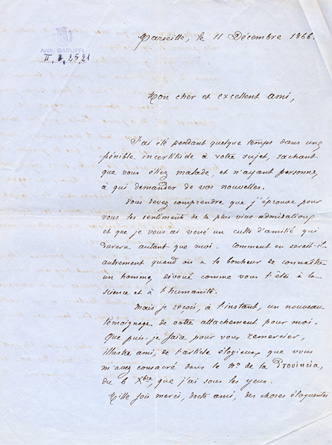 Arch. BARUFFI
II. 2, 2521
Marseille, le 11 Décembre 1866.
Mon cher et excellent ami,
J'ai été pendant quelque temps dans une
pénible incertitude à votre sujet, sachant
que vous étiez malade, et n'ayant personne,
à qui demander de vos nouvelles.
Vous devez comprendre que j'éprouve pour
vous les sentiments de la plus vive admiration,
et que je vous ai voué un culte d'amitié qui
durera autant que moi. Comment en serait-il
autrement quand on a le bonheur de connaître
un homme, dévoué comme vous l'êtes à la
science et à l'humanité.
Mais je reçois, à l'instant, un nouveau
témoignage de votre attachement pour moi.
Que puis-je faire, pour vous remercier,
illustre ami, de l'article élogieux que vous
m'avez consacré dans le No de la Provincia,
du 6 Xbre, que j'ai sous les yeux.
Mille fois merci, docte ami, des choses éloquentes